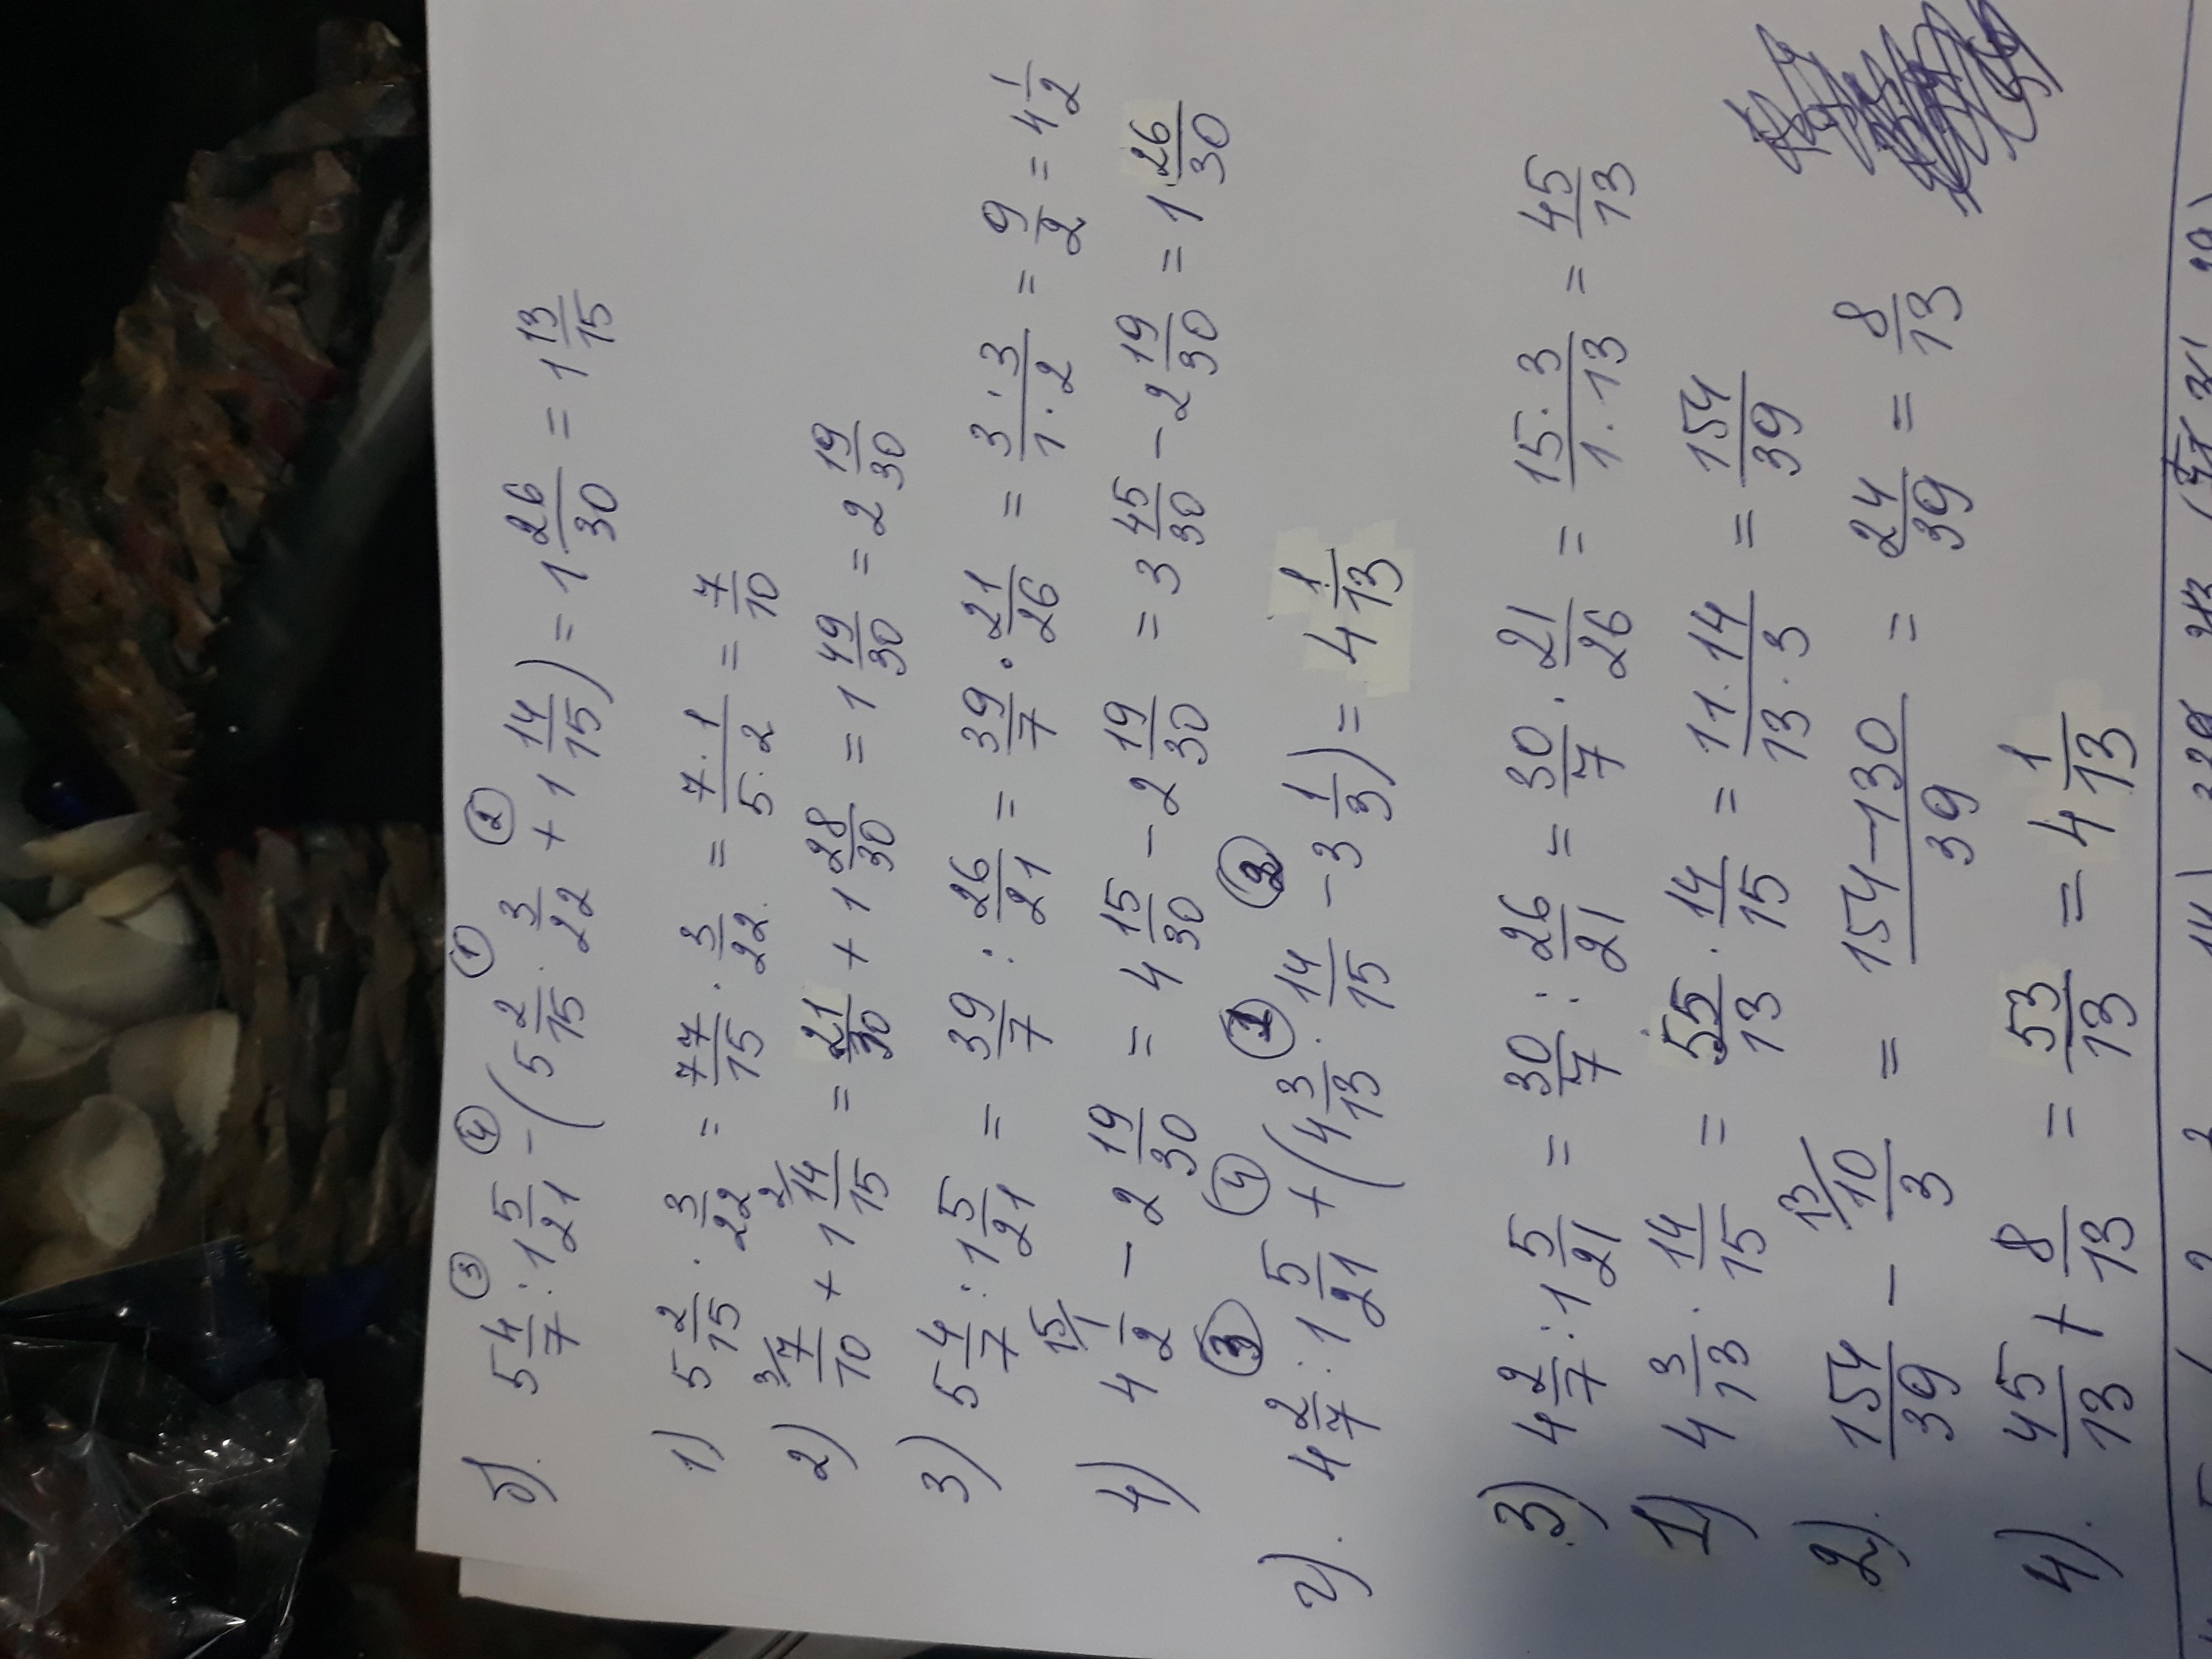 б). 5 4/7 : 1 5/21 - (5 2/15 · 3/22 + 1 14/15) = 1 26/30 = 1 13/15
③ ④ ① ②
1) 5 2/15 · 3/22 = 77/15 · 3/22 = 7·1/5·2 = 7/10
2) 3/ 7/10 + 1 2/ 14/15 = 21/30 + 1 28/30 = 1 49/30 = 2 19/30
3) 5 4/7 : 1 5/21 = 39/7 : 26/21 = 39/7 · 21/26 = 3·3/1·2 = 9/2 = 4 1/2
4) 4 15/ 1/2 - 2 19/30 = 4 15/30 - 2 19/30 = 3 45/30 - 2 19/30 = 1 26/30
③ ④ ① ②
г). 4 2/7 : 1 5/21 + (4 3/13 · 14/15 - 3 1/3) = 4 1/13
3) 4 2/7 : 1 5/21 = 30/7 : 26/21 = 30/7 · 21/26 = 15·3/1·13 = 45/13
1) 4 3/13 · 14/15 = 55/13 · 14/15 = 11·14/13·3 = 154/39
2). 154/39 - 13/ 10/3 = 154-130/39 = 24/39 = 8/13
4). 45/13 + 8/13 = 53/13 = 4 1/13